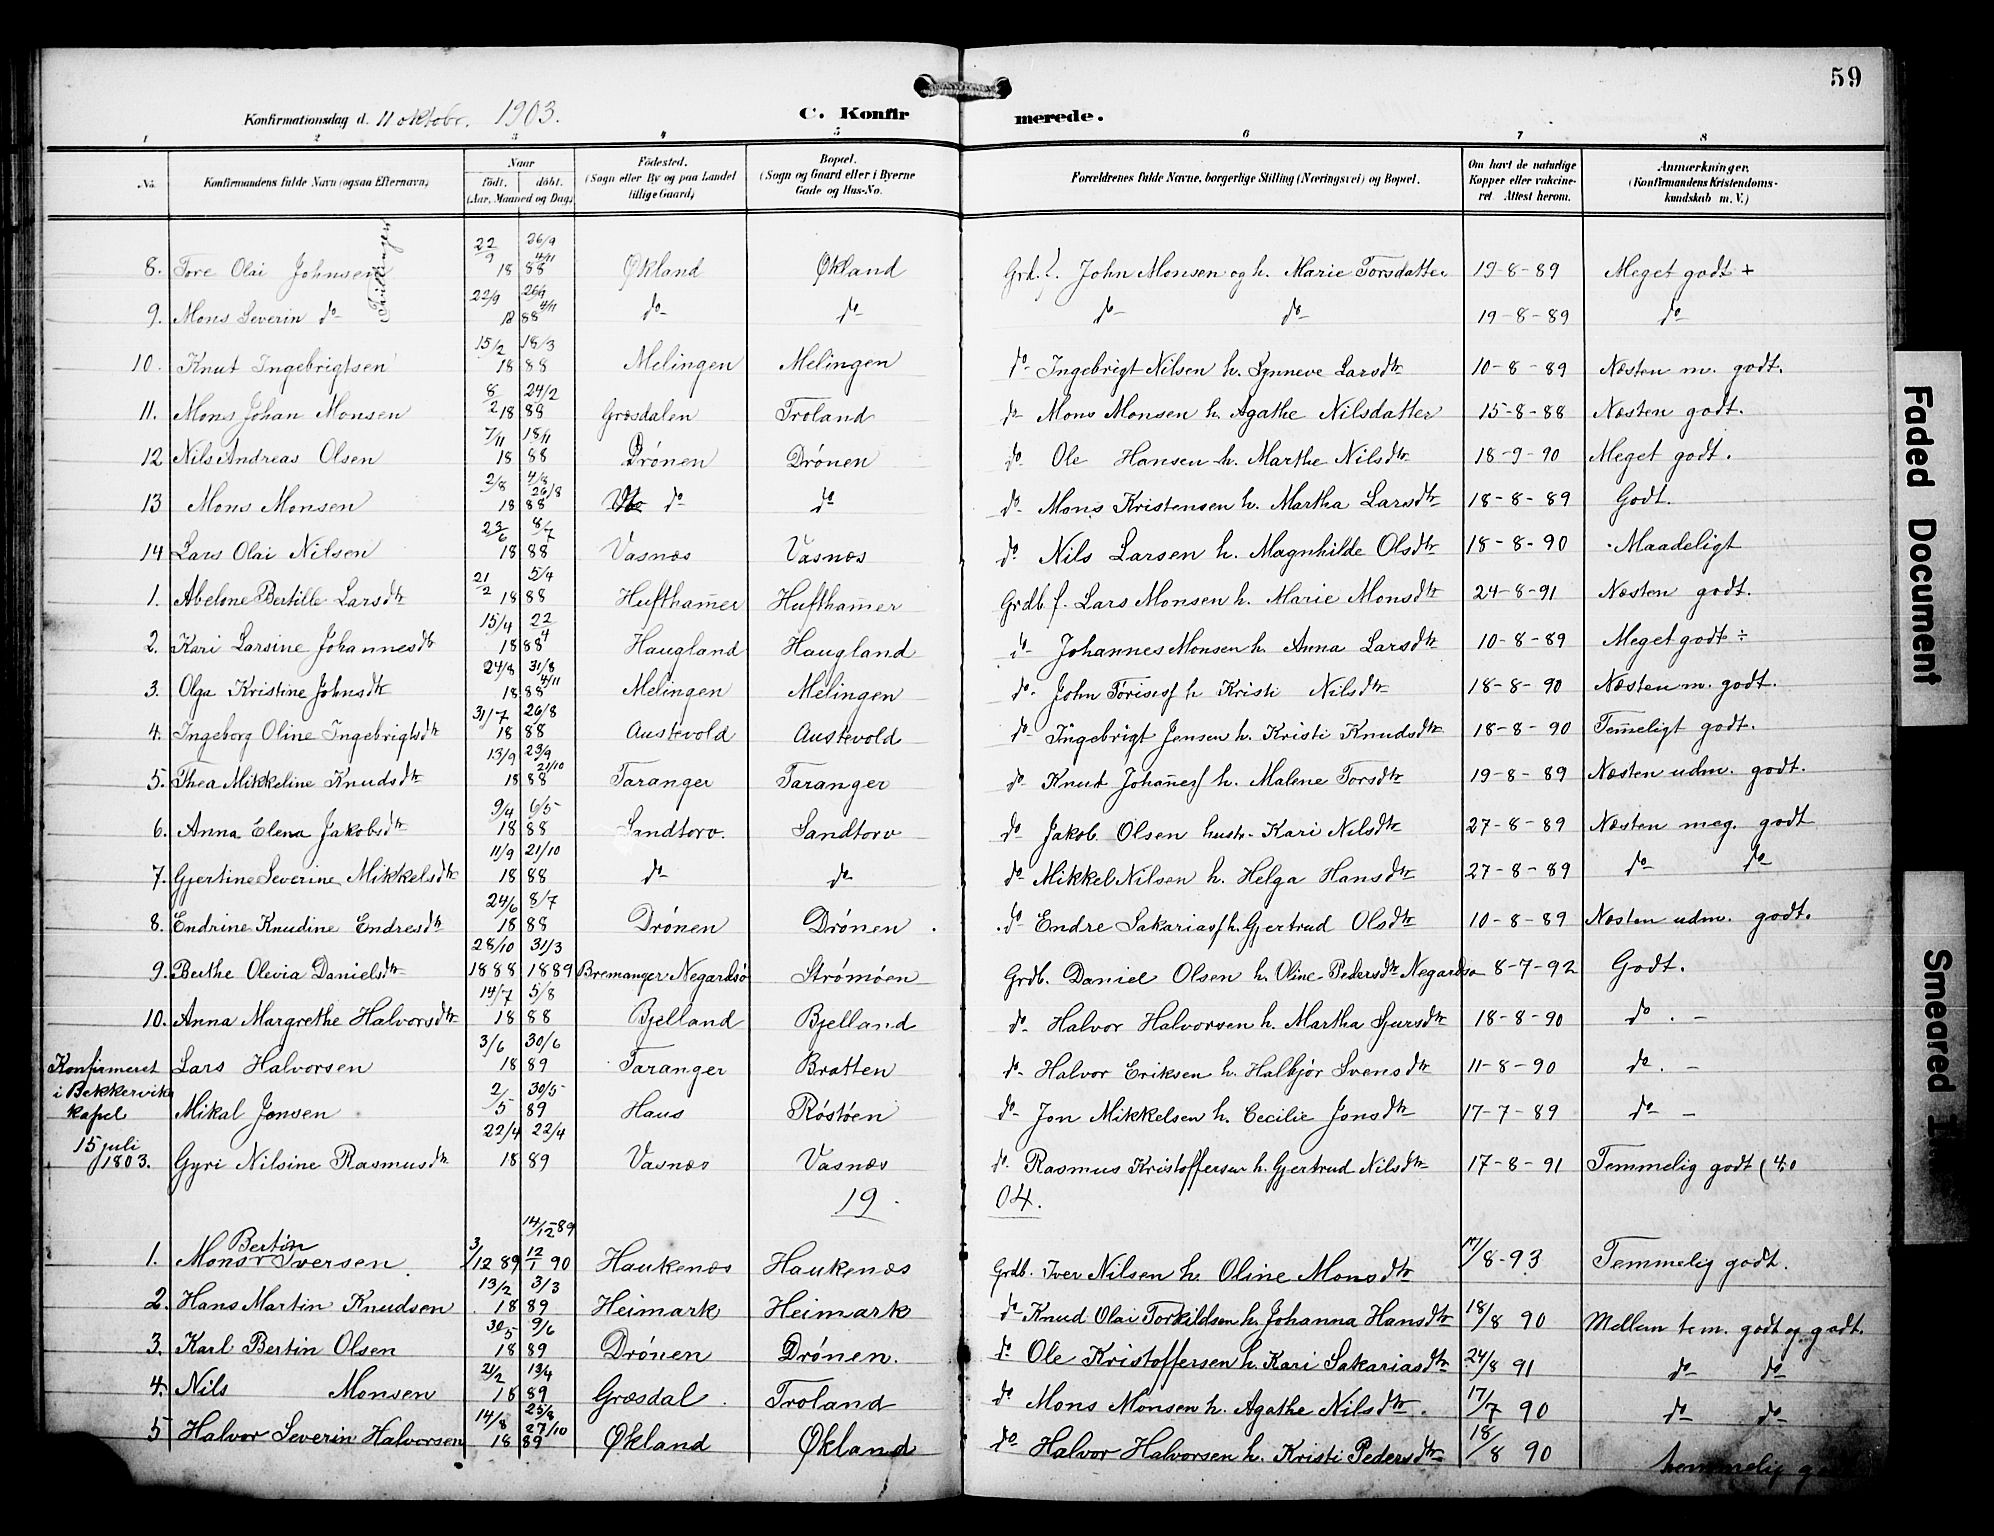 59
Konfirmationsdag d. 11 oktobr. 1903.
C. Konfirmerede.
1 2 3 4 5 6 7 8
No.
Konfirmandens fulde Navn (ogsaa Efternavn)
Naar
født. døbt.
(Aar, Maaned og Dag)
Födested.
(Sogn eller By og paa Landet tillige Gaard)
Bopæl.
(Sogn og Gaard eller i Byerne Gade og Hus-No.
Forældrenes fulde Navne, borgerlige Stilling (Næringsvei) og Bopæl.
Om havt de naturlige Kopper eller vakcineret Attest herom.
Anmærkninger.
(Konfirmandens Kristendomskundskab m. V.)
Tvillinger
8. Tore Olai Johnsen 22/9 26/9 4/11 18 88 Økland Økland Grd. f. John Monsen og h. Marie Torsdatter 19-8-89 Meget godt +
9. Mons Severin do 22/9 26/9 4/11 18 88 do do do do 19-8-89 do
10. Knut Ingebrigtsen 15/2 18/3 18 88 Melingen Melingen do Ingebrigt Nilsen h. Synneve Larsdtr 10-8-89 Næsten m. godt.
11. Mons Johan Monsen 8/2 24/2 18 88 Græsdalen Troland do Mons Monsen h. Agathe Nilsdatter 15-8-88 Næsten godt.
12 Nils Andreas Olsen 7/11 18/11 18 88 Drónen Drónen do Ole Hansen h. Marthe Nilsdtr 18-9-90 Meget godt.
13 Mons Monsen 2/8 4/8 26/8 18 88 do do do Mons Kristensen h. Martha Larsdtr 18-8-89 Godt.
14 Lars Olai Nilsen 23/6 8/7 18 88 Vasnæs Vasnæs do Nils Larsen h. Magnhilde Olsdtr 18-8-90 Maadeligt
1. Abelone Bertille Larsdtr 21/2 5/4 18 88 Huftham̄er Huftham̄er Grdb. f. Lars Monsen h. Marie Monsdtr 24-8-91 Næsten godt.
2. Kari Larsine Johannesdtr 15/4 22/4 18 88 Haugland Haugland Johannes Monsen h. Anna Larsdtr 10-8-89 Meget godt ÷
3. Olga Kristine Johnsdtr 24/8 31/8 4/11 18 88 Melingen Melingen do. John Tóriss h Kristi Nilsdtr 18-8-90 Næsten m. godt.
4. Ingeborg Oline Ingebrigtsdtr 31/7 26/8 18 88 Austevold Austevold do Ingebrigt Jensen h. Kristi Knudsdtr 18-8-90 Tem̄eligt godt.
5. Thea Mikkeline Knudsdtr 13/9 23/9 21/10 18 88 Taranger Taranger do Knut Johan̄es h. Malene Torsdtr 19-8-89 Næsten udm. godt.
6. Anna Elena Jakobsdtr 9/4 6/5 18 88 Sandtorv. Sandtorv do Jakob Olsen hustr. Kari Nilsdtr 27-8-89 Næsten meg. godt
7. Gjertine Severine Mikkelsdtr 11/9 21/10 18 88 do do do Mikkel Nilsen h. Helga Hansdtr 27-8-89 do do
8. Endrine Knudine Endresdtr 24/6 8/7 18 88 Drónen Drónen. do Endre Sakarias h. Gjertrud Olsdtr 10-8-89 Næsten udm. godt.
9. Berthe Olevia Danielsdtr 28/10 31/3 1888 1889 Bremanger Negardsø Strømøen Grdb. Daniel Olsen h. Oline Pedersdtr Negardsø 8-7-92 Godt.
10. Anna Margrethe Halvorsdtr 14/7 5/8 18 88 Bjelland Bjelland do Halvor Halvorsen h. Martha Sjursdtr 18-8-90 do. -
Konfirmeret i Bekkervik kapel 15 juli 1803.
Lars Halvorsen 3/6 30/6 18 89 Taranger Bratten do Halvor Eriksen h. Halbjór Svensdtr 11-8-90 do. -
Mikal Jonsen 2/5 30/5 89 Haus Róstóen do Jon Mikkelsen h. Cecilie Jonsdtr 17-7-89 do -
Gyri Nilsine Rasmusdtr 22/4 22/4 18 89 Vasnæs Vasnæs do. Rasmus Kristoffersen h. Gjertrud Nilsdtr 17-8-91 Temmelig godt (40
19 04.
1. Mons Bertin Iversen 3/12 89 14/12-89 12/1 90 Haukenæs Haukenæs Grdb. Iver Nilsen h. Oline Monsdtr 17/8-93 Temmelig godt.
2. Hans Martin Knudsen 13/2 3/3 18 89 Heimark Heimark do Knud Olai Torkildsen h. Johanna Hansdtr 18/8 90 Mellem tem. godt og godt.
3. Karl Bertin Olsen 30/5 9/6 18 89 Drónen Drónen. do Ole Kristoffersen h. Kari Sakariasdtr 24/8 91 do do
4. Nils Monsen 21/2 13/4 18 89 Græsdal. Troland do Mons Monsen h. Agathe Nilsdtr. 17/7 90 do do
5 Halvor Severin Halvorsen 14/8 25/8 27/10 18 89 Økland Økland do Halvor Halvorsen h. Kristi Pedersdtr 18/8 90 temmelig
Faded Document
Smeared